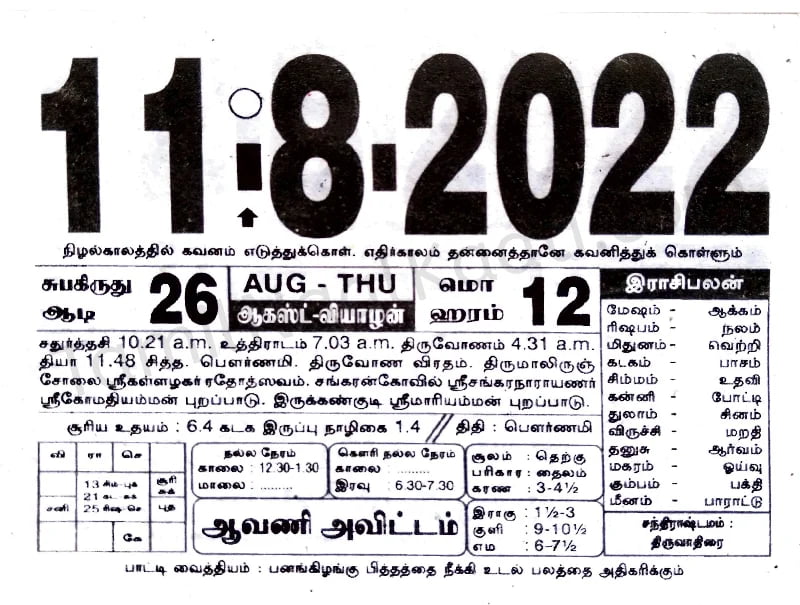 11-8-2022
நிழல்காலத்தில் கவனம் எடுத்துக்கொள். எதிர்காலம் தன்னைத்தானே கவனித்துக் கொள்ளும்
சுபகிருது
ஆடி 26
AUG - THU
ஆகஸ்ட்-வியாழன்
மொ
ஹரம் 12
சதுர்த்தசி 10.21 a.m. உத்திராடம் 7.03 a.m. திருவோணம் 4.31 a.m.
தியா 11.48 சித்த. பௌர்ணமி. திருவோண விரதம். திருமாலிருஞ்
சோலை ஸ்ரீகள்ளழகர் ரதோத்ஸவம். சங்கரன்கோவில் ஸ்ரீசங்கரநாராயணர்
ஸ்ரீகோமதியம்மன் புறப்பாடு. இருக்கண்குடி ஸ்ரீமாரியம்மன் புறப்பாடு.
சூரிய உதயம் : 6.4 கடக இருப்பு நாழிகை 1.4 // திதி : பௌர்ணமி
இராசிபலன்
மேஷம் - ஆக்கம்
ரிஷபம் - நலம்
மிதுனம் - வெற்றி
கடகம் - பாசம்
சிம்மம் - உதவி
கன்னி - போட்டி
துலாம் - சினம்
விருச்சி - மறதி
தனுசு - ஆர்வம்
மகரம் - ஓய்வு
கும்பம் - பக்தி
மீனம் - பாராட்டு
சந்திராஷ்டமம் :
திருவாதிரை
வி ரா செ
13 சிம-புக சூரி
21 கட-சுக் சுக்
சனி 25 ரிஷ-செ புத
கே
நல்ல நேரம்
காலை : 12.30-1.30
மாலை : .........
கௌரி நல்ல நேரம்
காலை : .........
இரவு : 6.30-7.30
சூலம் : தெற்கு
பரிகார : தைலம்
கரண : 3-4½
ஆவணி அவிட்டம்
இராகு : 1½-3
குளி : 9-10½
எம : 6-7½
பாட்டி வைத்தியம் : பனங்கிழங்கு பித்தத்தை நீக்கி உடல் பலத்தை அதிகரிக்கும்